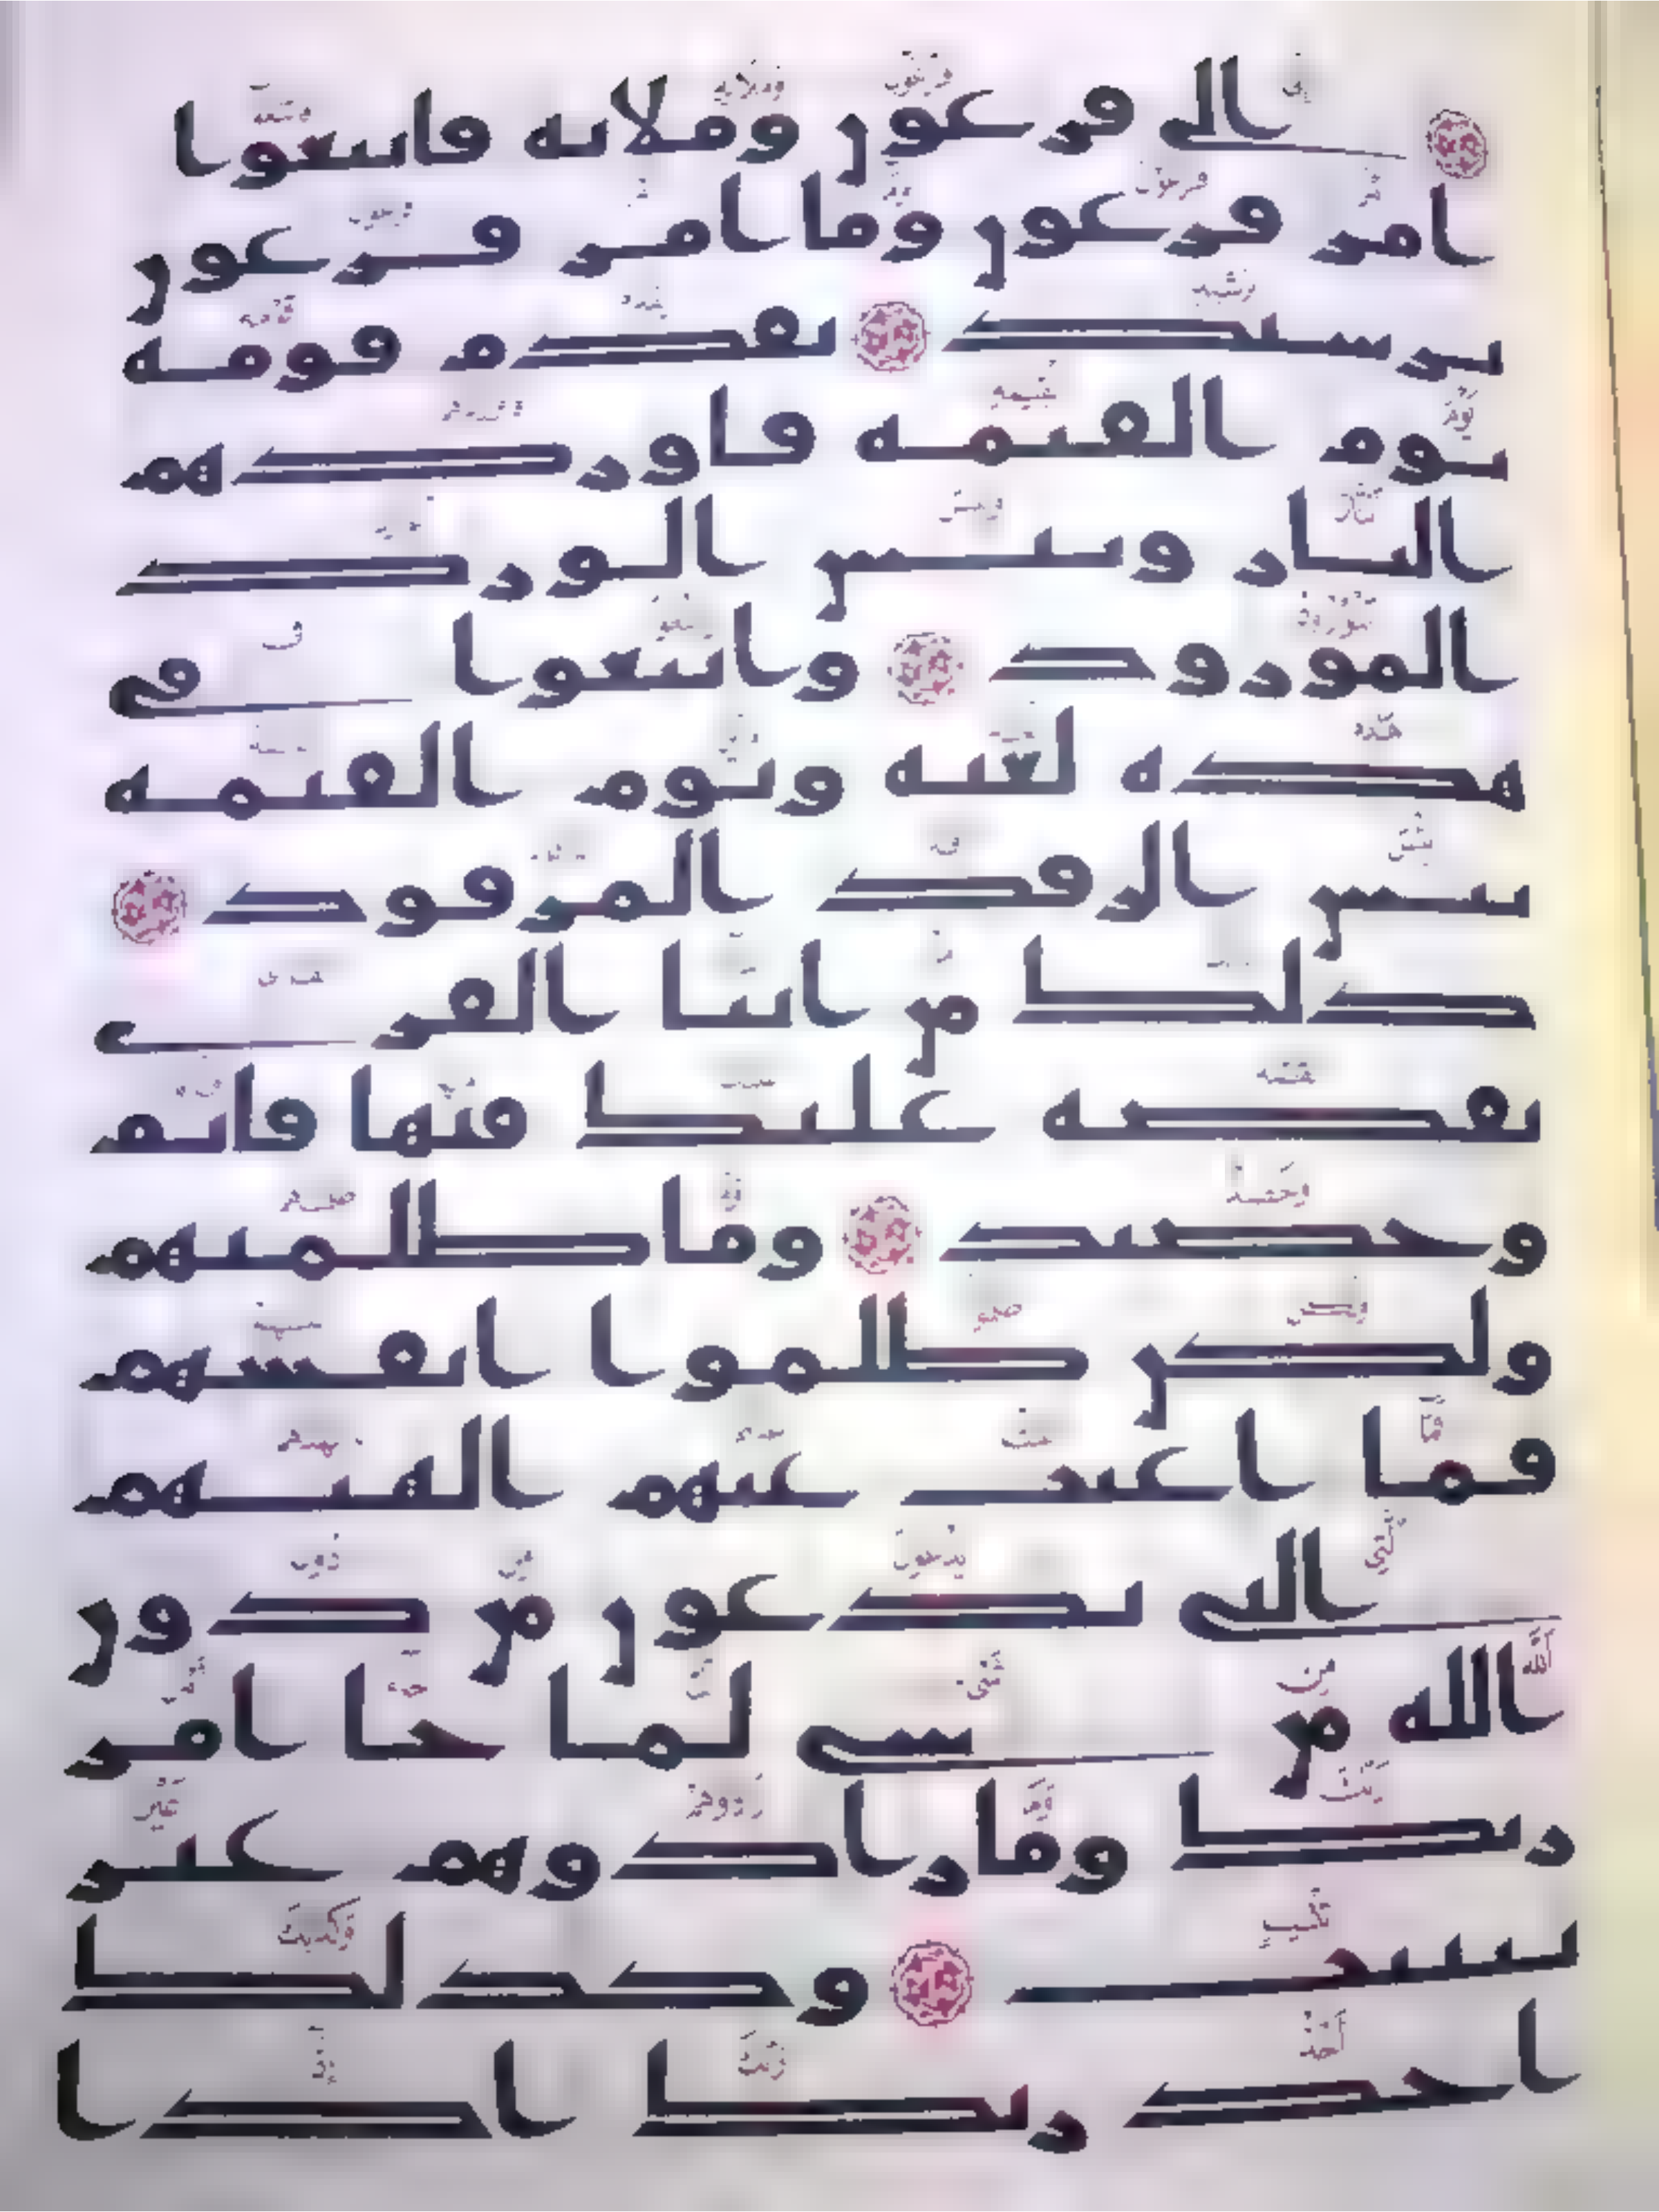 الى فرعون وملايه فاتبعوا
امر فرعون وما امر فرعون
برشيد يقدم قومه
يوم القيمة فاوردهم
النار وبئس الورد
المورود واتبعوا في
هذه لعنة ويوم القيمة
بئس الرفد المرفود
ذلك من انبا القرى
نقصه عليك منها قائم
وحصيد وما ظلمنهم
ولكن ظلموا انفسهم
فما اغنت عنهم الهتهم
التي يدعون من دون
الله من شي لما جا امر
ربك وما زادوهم غير
تتبيب وكذلك
اخذ ربك اذا